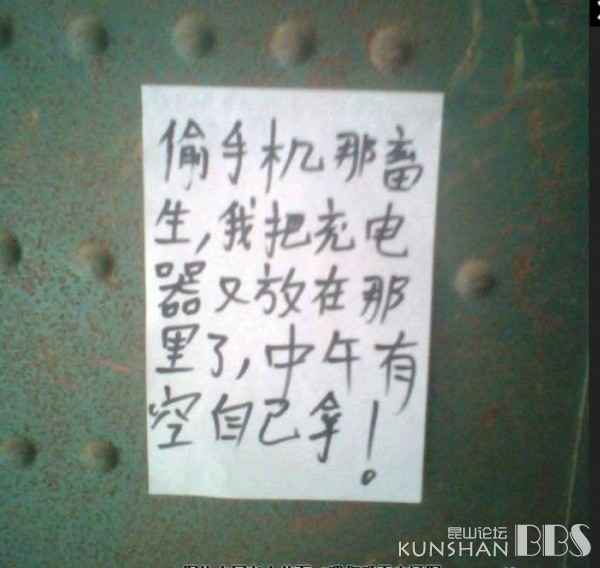 偷手机那畜
生,我把充电
器又放在那
里了,中午有
空自己拿!
昆山论坛
KUNSHAN BBS